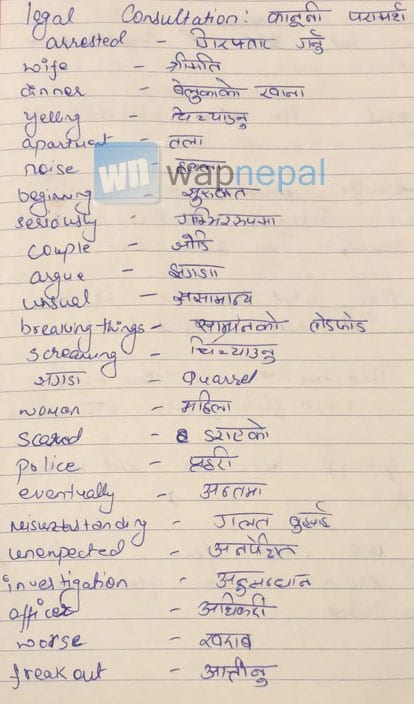 legal Consultation: कानूनी परामर्श
arrested - गिरफ्तार गर्नु
wife - श्रीमति
dinner - बेलुकाको खाना
yelling - चिच्याउनु
apartment - तला
noise - हल्ला
wn wapnepal
beginning - सुरुवात
seriously - गम्भिररुपमा
couple - जोडि
argue - झगडा
unsual - असामान्य
breaking-things - सामानको तोडफोड
screaming - चिच्याउनु
झगडा - Quarrel
woman - महिला
scared - डराएको
police - प्रहरी
eventually - अन्तमा
misunderstanding - गलत बुझाई
unenpected - अनपेक्षित
investigation - अनुसन्धान
officer - अधिकारी
worse - खराब
freak out - आत्तीनु